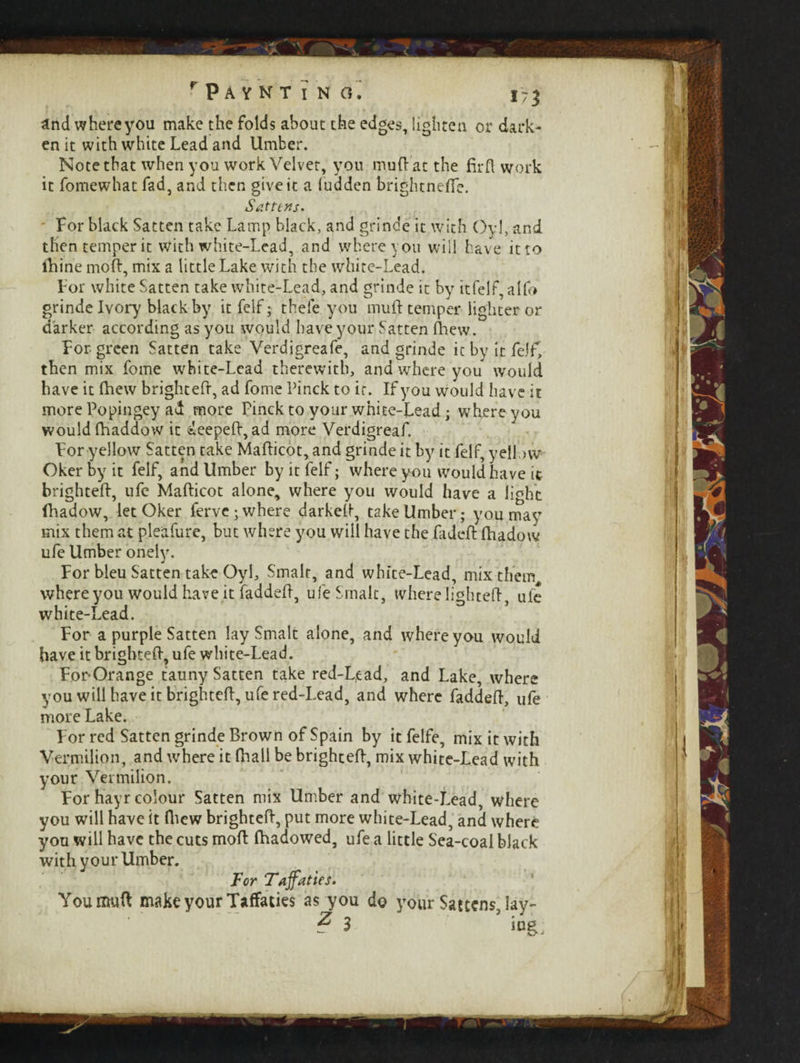 PAYNTING. 173
and where you make the folds about the edges, lighten or dark-
en it with white Lead and Umber.
Note that when you work Velvet, you muſt at the firſt work
it ſomewhat ſad, and then give it a ſudden brightneſſe.
Sattens.
For black Satten take Lamp black, and grinde it with Oyl, and
then temper it with white-Lead, and where you will have it to
ſhine moſt, mix a little Lake with the white-Lead.
For white Satten take white-Lead, and grinde it by itſelf, alſo
grinde Ivory black by it ſelf; theſe you muſt temper lighter or
darker according as you would have your Satten ſhew.
For green Satten take Verdigreaſe, and grinde it by it ſelf,
then mix ſome white-Lead therewith, and where you would
have it ſhew brighteſt, ad ſome Pinck to it. If you would have it
more Popingey ad more Pinck to your white-Lead; where you
would ſhaddow it deepeſt, ad more Verdigreaſ.
For yellow Satten take Maſticot, and grinde it by it ſelf, yellow
Oker by it ſelf, and Umber by it ſelf; where you would have it
brighteſt, uſe Maſticot alone, where you would have a light
ſhadow, let Oker ſerve; where darkeſt, take Umber; you may
mix them at pleaſure, but where you will have the ſadeſt ſhadow
uſe Umber onely.
For bleu Satten take Oyl, Smalt, and white-Lead, mix them,
where you would have it ſaddeſt, uſe Smalt, where lighteſt, uſe
white-Lead.
For a purple Satten lay Smalt alone, and where you would
have it brighteſt, uſe white-Lead.
For Orange tauny Satten take red-Lead, and Lake, where
you will have it brighteſt, uſe red-Lead, and where ſaddeſt, uſe
more Lake.
For red Satten grinde Brown of Spain by it ſelfe, mix it with
Vermilion, and where it ſhall be brighteſt, mix white-Lead with
your Vermilion.
For hayr colour Satten mix Umber and white-Lead, where
you will have it ſhew brighteſt, put more white-Lead, and where
you will have the cuts moſt ſhadowed, uſe a little Sea-coal black
with your Umber.
For Taffaties.
You muſt make your Taffaties as you do your Sattens, lay-
Z 3 ing